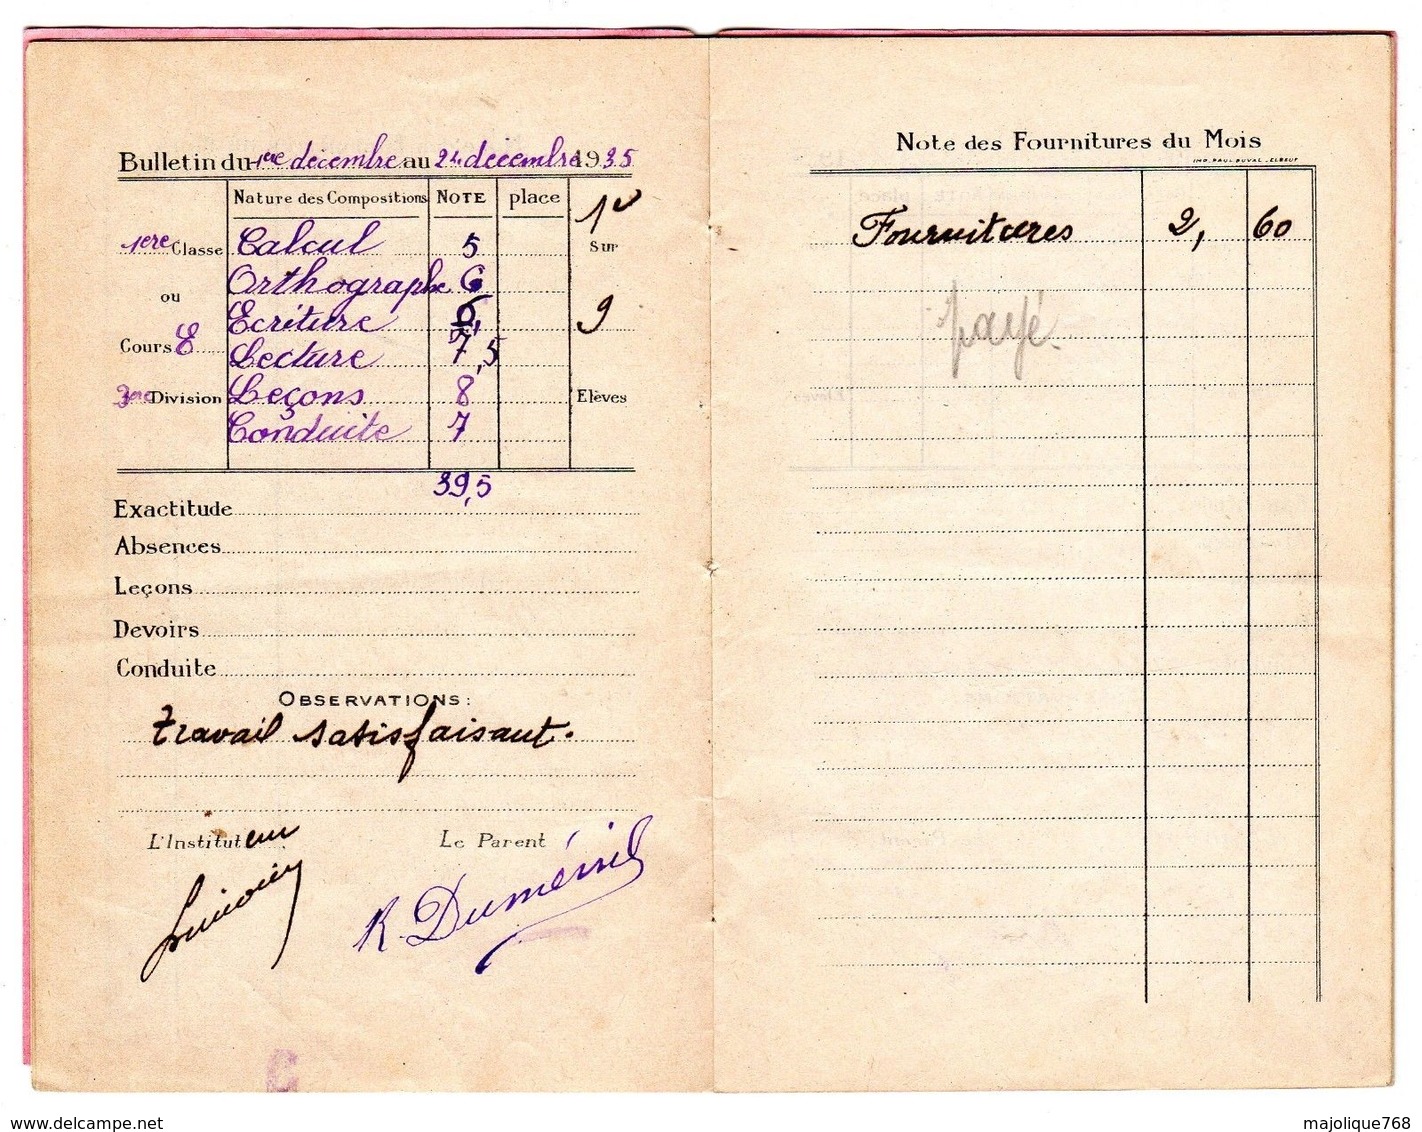 Bulletin du 1ere décembre au 24 décembre 1935
Nature des Compositions NOTE place
1e
1ere Classe Calcul 5 Sur
Orthographe 6
ou
Ecriture 6, 9
Cours E Lecture 7,5
3ere Division Leçons 8 Elèves
Conduite 7
39,5
Exactitude
Absences
Leçons
Devoirs
Conduite
OBSERVATIONS:
travail satisfaisant.
L'Instituteur Le Parent
R. Duménil
Note des Fournitures du Mois
IMP. PAUL DUVAL - ELBEUF
Fournitures 2, 60
payé.
www.delcampe.net
majolique768